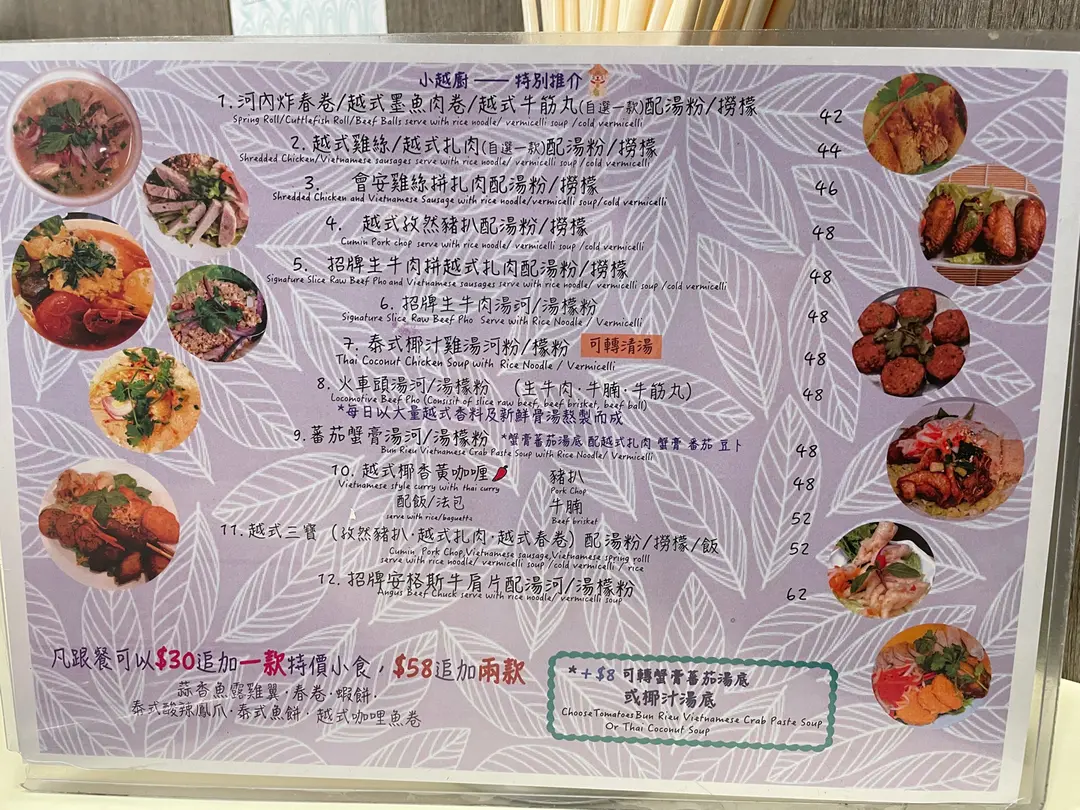 小越廚 —— 特別推介
1. 河內炸春卷/越式墨魚肉卷/越式牛筋丸(自選一款)配湯粉/撈檬 42
Spring Roll/Cuttlefish Roll/Beef Balls serve with rice noodle/ vermicelli soup /cold vermicelli
2. 越式雞絲/越式扎肉(自選一款)配湯粉/撈檬 44
Shredded Chicken/Vietnamese sausages serve with rice noodle/ vermicelli soup /cold vermicelli
3. 會安雞絲拼扎肉配湯粉/撈檬 46
Shredded Chicken and Vietnamese Sausage with rice noodle/vermicelli soup/cold vermicelli
4. 越式孜然豬扒配湯粉/撈檬 48
Cumin Pork chop serve with rice noodle/ vermicelli soup /cold vermicelli
5. 招牌生牛肉拼越式扎肉配湯粉/撈檬 48
Signature Slice Raw Beef Pho and Vietnamese sausages serve with rice noodle/ vermicelli soup /cold vermicelli
6. 招牌生牛肉湯河/湯檬粉 48
Signature Slice Raw Beef Pho Serve with Rice Noodle / Vermicelli
7. 泰式椰汁雞湯河粉/檬粉 可轉清湯 48
Thai Coconut Chicken Soup with Rice Noodle / Vermicelli
8. 火車頭湯河/湯檬粉 (生牛肉·牛腩·牛筋丸) 48
Locomotive Beef Pho (Consisit of slice raw beef, beef brisket, beef ball)
*每日以大量越式香料及新鮮骨湯熬製而成
9. 蕃茄蟹膏湯河/湯檬粉 *蟹膏蕃茄湯底 配越式扎肉 蟹膏 番茄 豆卜 48
Bun Rieu Vietnamese Crab Paste Soup with Rice Noodle/ Vermicelli
10. 越式椰香黃咖喱 豬扒 48
Vietnamese style curry with thai curry Pork Chop
配飯/法包 牛腩 52
serve with rice/baguette Beef brisket
11. 越式三寶 (孜然豬扒·越式扎肉·越式春卷) 配湯粉/撈檬/飯 52
Cumin Pork Chop,Vietnamese sausage,Vietnamese spring rolll
serve with rice noodle/ vermicelli soup /cold vermicelli / rice
12. 招牌安格斯牛肩片配湯河/湯檬粉 62
Angus Beef Chuck serve with rice noodle/ vermicelli soup
凡跟餐可以$30追加一款特價小食，$58追加兩款
蒜香魚露雞翼·春卷·蝦餅·
泰式酸辣鳳爪·泰式魚餅·越式咖哩魚卷
*+$8 可轉蟹膏蕃茄湯底
或椰汁湯底
Choose Tomatoes Bun Rieu Vietnamese Crab Paste Soup
Or Thai Coconut Soup